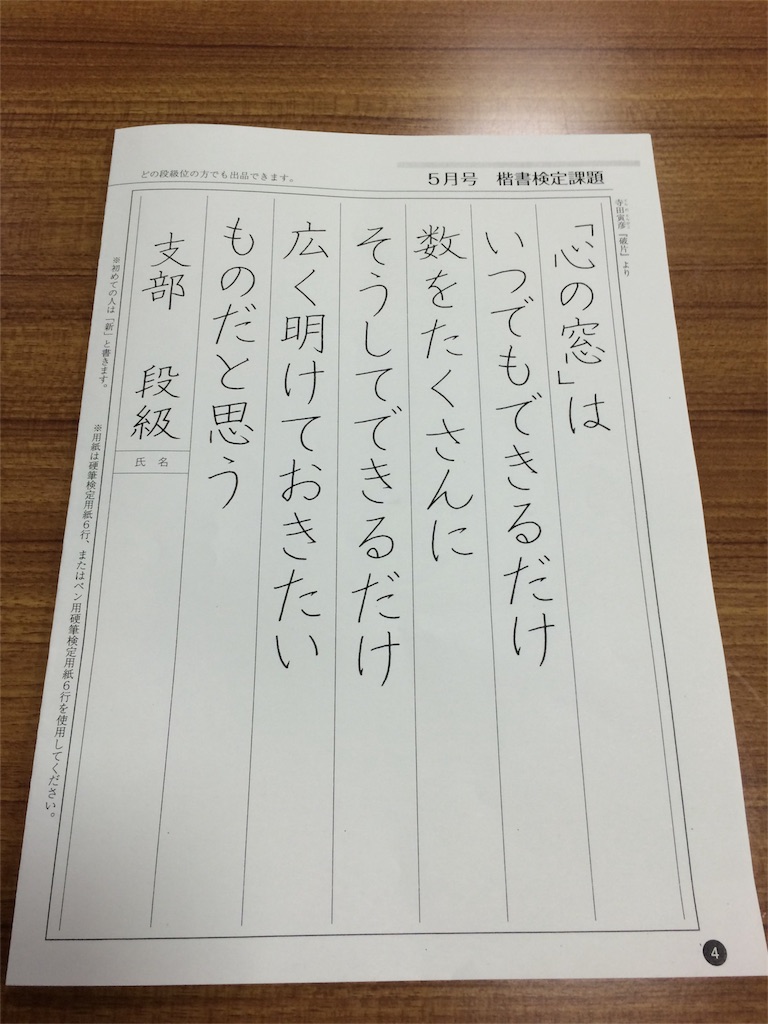 どの段級位の方でも出品できます。
5月号 楷書検定課題
寺田寅彦『破片』より
「心の窓」は
いつでもできるだけ
数をたくさんに
そうしてできるだけ
広く明けておきたい
ものだと思う
支部 段級
氏名
※初めての人は「新」と書きます。
※用紙は硬筆検定用紙6行、またはペン用硬筆検定用紙6行を使用してください。
4